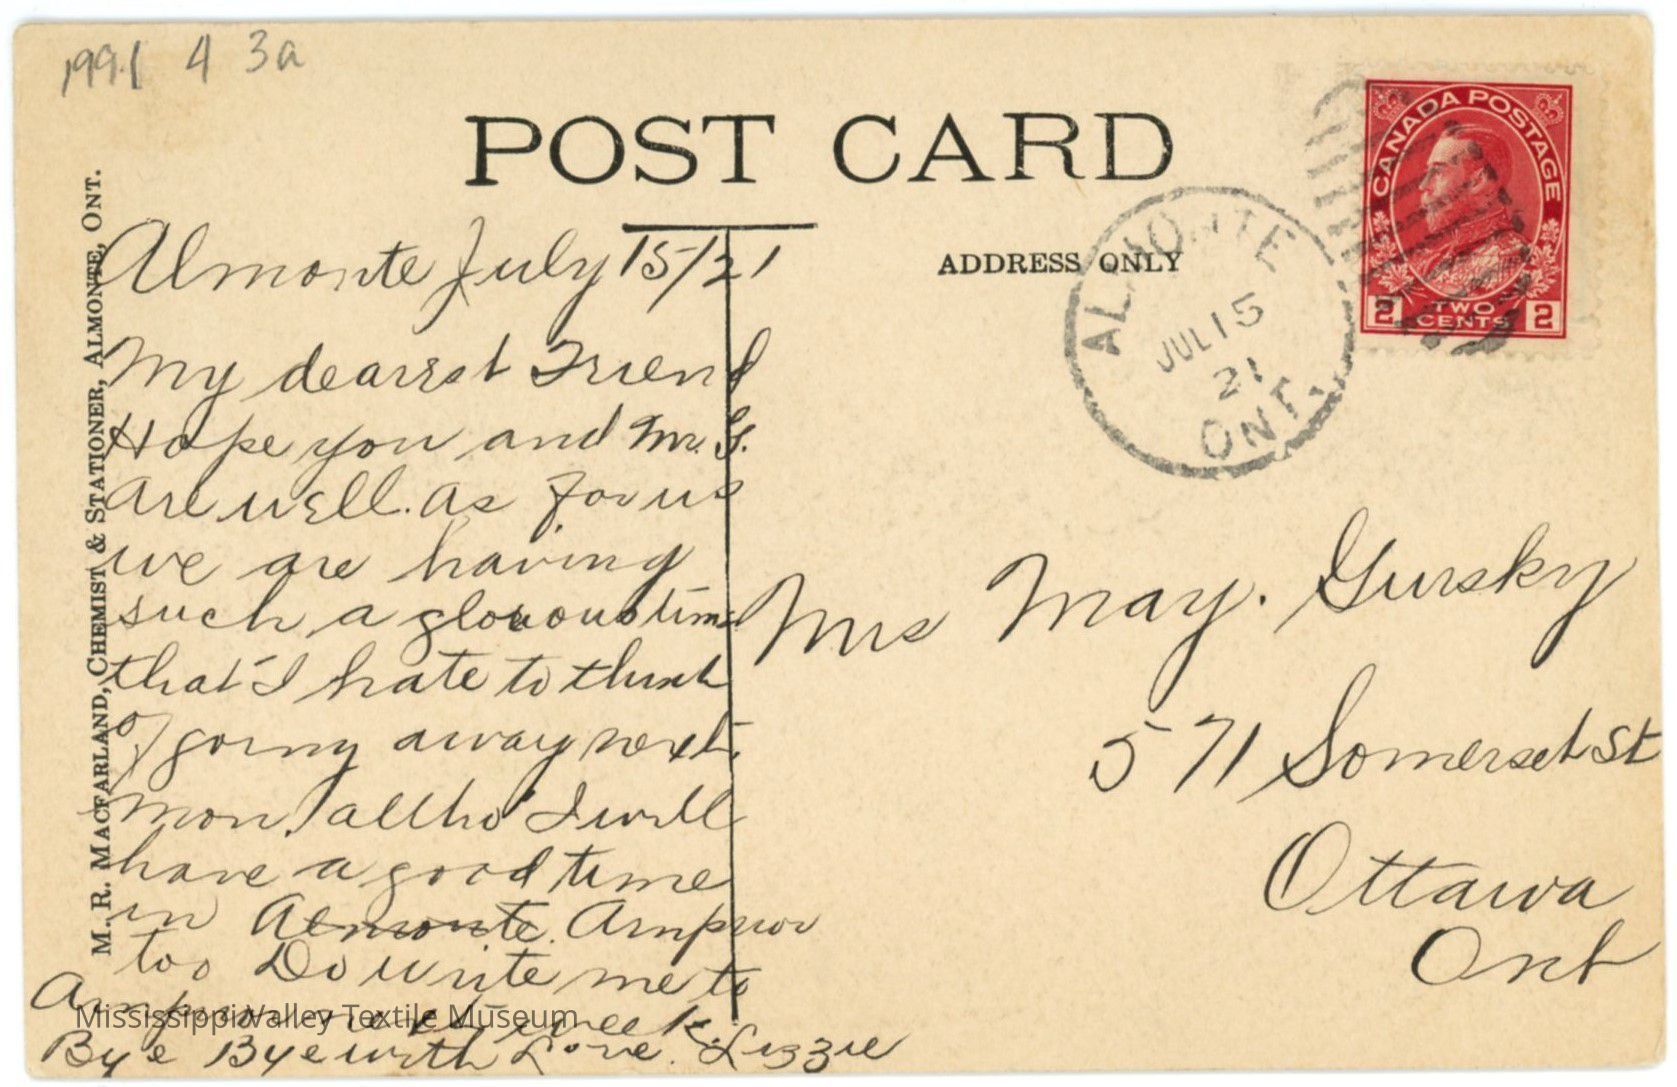 1991 4 3a
POST CARD
ADDRESS ONLY
CANADA POSTAGE
2 TWO CENTS 2
ALMONTE
JUL 15
21
ONT.
M. R. MACFARLAND, CHEMIST & STATIONER, ALMONTE, ONT.
Almonte July 15/21
My dearest Friend
Hope you and Mr. G.
are well. As for us
we are having
such a glorous time
that I hate to think
of going away next
mon. altho' I will
have a good time
in Almonte. Arnprior
too Do write me to
Arnprior next week.
Bye Bye with Love. Lizzie
Mrs May. Gursky
571 Somerset St
Ottawa
Ont
Mississippi Valley Textile Museum